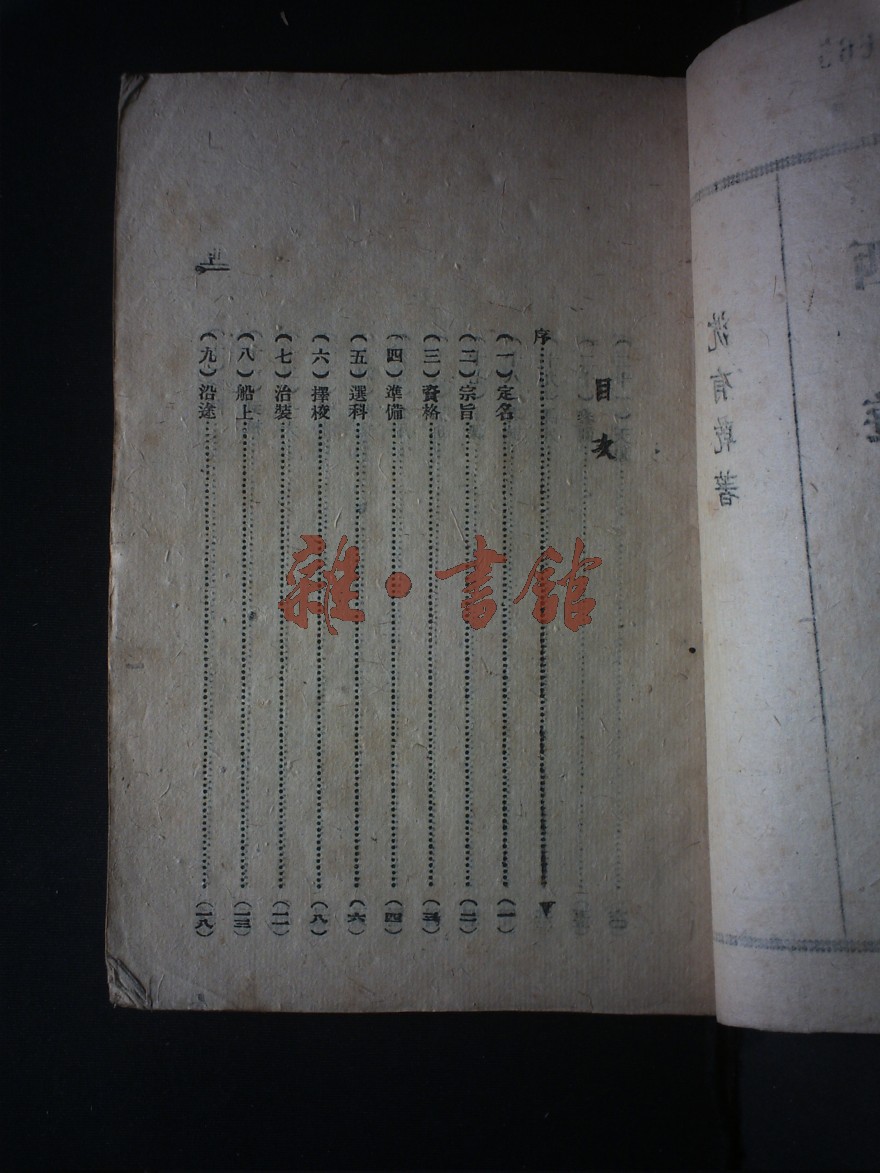 目次
序
(一)定名 (一)
(二)宗旨 (二)
(三)資格 (三)
(四)準備 (四)
(五)選科 (六)
(六)擇校 (八)
(七)治裝 (一一)
(八)船上 (一三)
(九)沿途 (一八)
雜·書館
冼有乾著